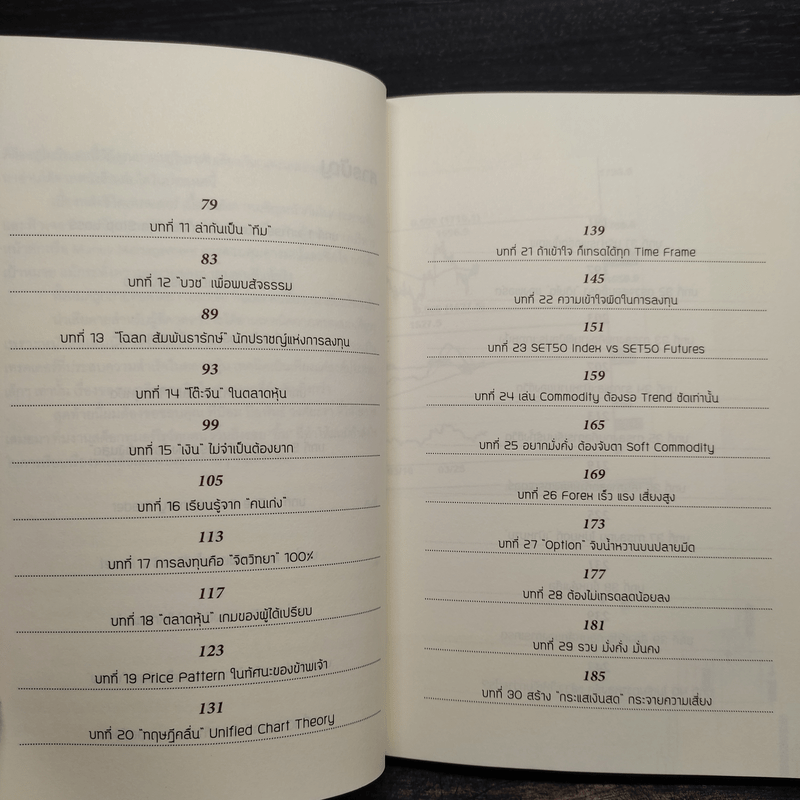 79
บทที่ 11 ล่ากันเป็น "ทีม"
83
บทที่ 12 "บวช" เพื่อพบสัจธรรม
89
บทที่ 13 "โฉลก สัมพันธารักษ์" นักปราชญ์แห่งการลงทุน
93
บทที่ 14 "โต๊ะจีน" ในตลาดหุ้น
99
บทที่ 15 "เงิน" ไม่จำเป็นต้องยาก
105
บทที่ 16 เรียนรู้จาก "คนเก่ง"
113
บทที่ 17 การลงทุนคือ "จิตวิทยา" 100%
117
บทที่ 18 "ตลาดหุ้น" เกมของผู้ได้เปรียบ
123
บทที่ 19 Price Pattern ในทัศนะของข้าพเจ้า
131
บทที่ 20 "ทฤษฎีคลื่น" Unified Chart Theory
139
บทที่ 21 ถ้าเข้าใจ ก็เทรดได้ทุก Time Frame
145
บทที่ 22 ความเข้าใจผิดในการลงทุน
151
บทที่ 23 SET50 Index vs SET50 Futures
159
บทที่ 24 เล่น Commodity ต้องรอ Trend ชัดเท่านั้น
165
บทที่ 25 อยากมั่งคั่ง ต้องจับตา Soft Commodity
169
บทที่ 26 Forex เร็ว แรง เสี่ยงสูง
173
บทที่ 27 "Option" จิบน้ำหวานบนปลายมีด
177
บทที่ 28 ต้องไม่เทรดลดน้อยลง
181
บทที่ 29 รวย มั่งคั่ง มั่นคง
185
บทที่ 30 สร้าง "กระแสเงินสด" กระจายความเสี่ยง